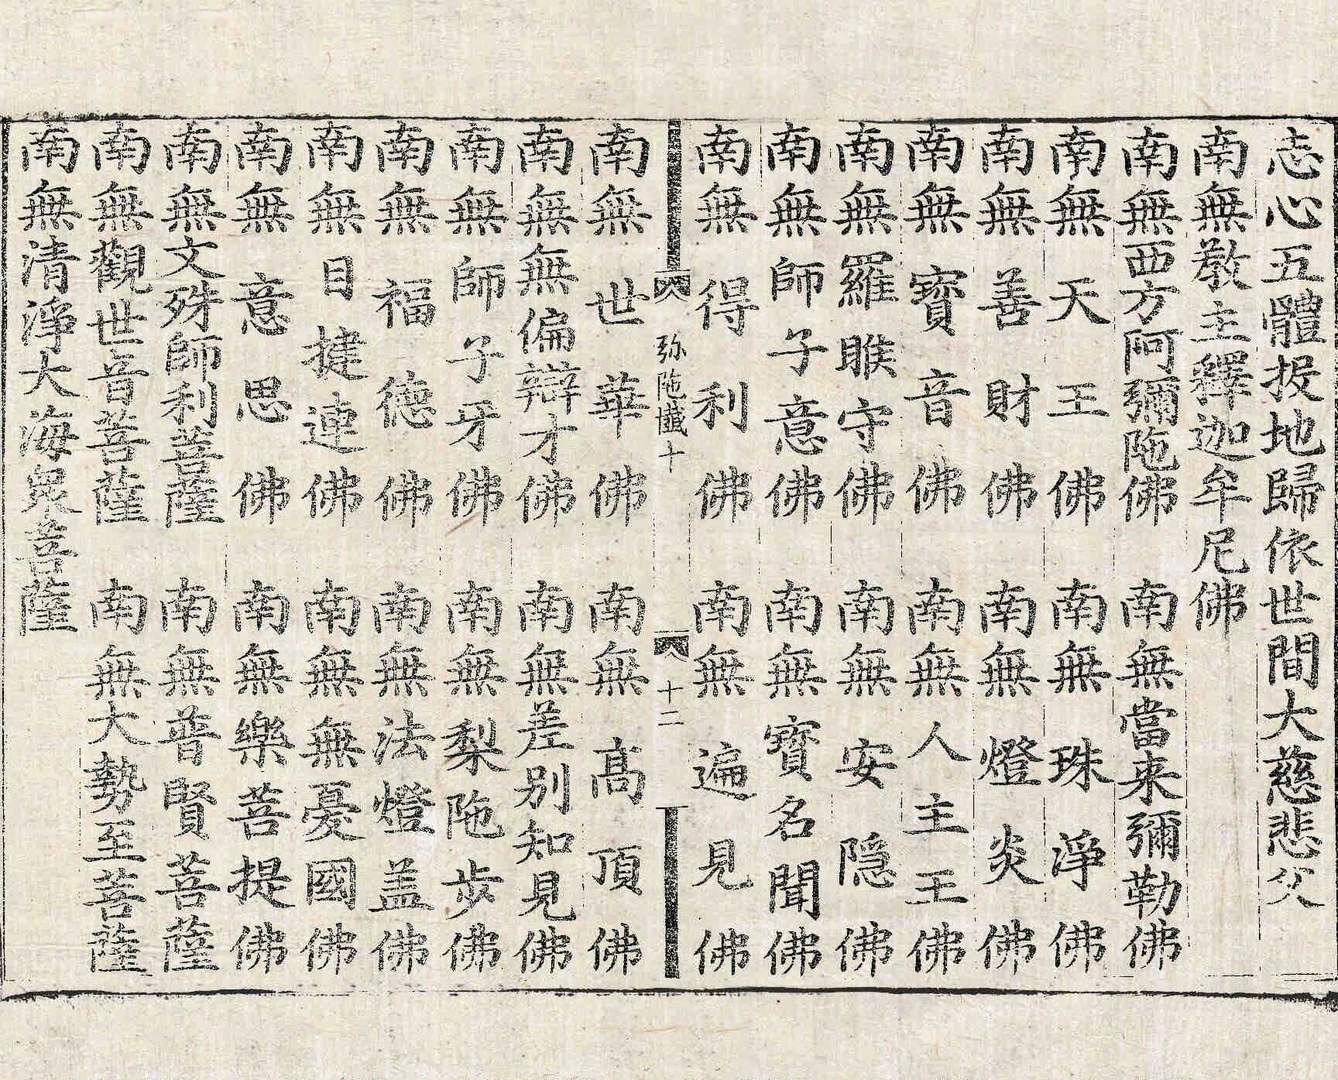 志心五體投地歸依世間大慈悲父
南無教主釋迦牟尼佛
南無西方阿彌陁佛 南無當来彌勒佛
南無天王佛 南無珠淨佛
南無善財佛 南無燈炎佛
南無寳音佛 南無人主王佛
南無羅睺守佛 南無安隠佛
南無師子意佛 南無寳名聞佛
南無得利佛 南無遍見佛
弥陁懺十 十二
南無世華佛 南無髙頂佛
南無無偏辯才佛 南無差别知見佛
南無師子牙佛 南無梨陁步佛
南無福德佛 南無法燈盖佛
南無目揵連佛 南無無憂國佛
南無意思佛 南無樂菩提佛
南無文殊師利菩薩 南無普賢菩薩
南無觀世音菩薩 南無大勢至菩薩
南無清淨大海衆菩薩